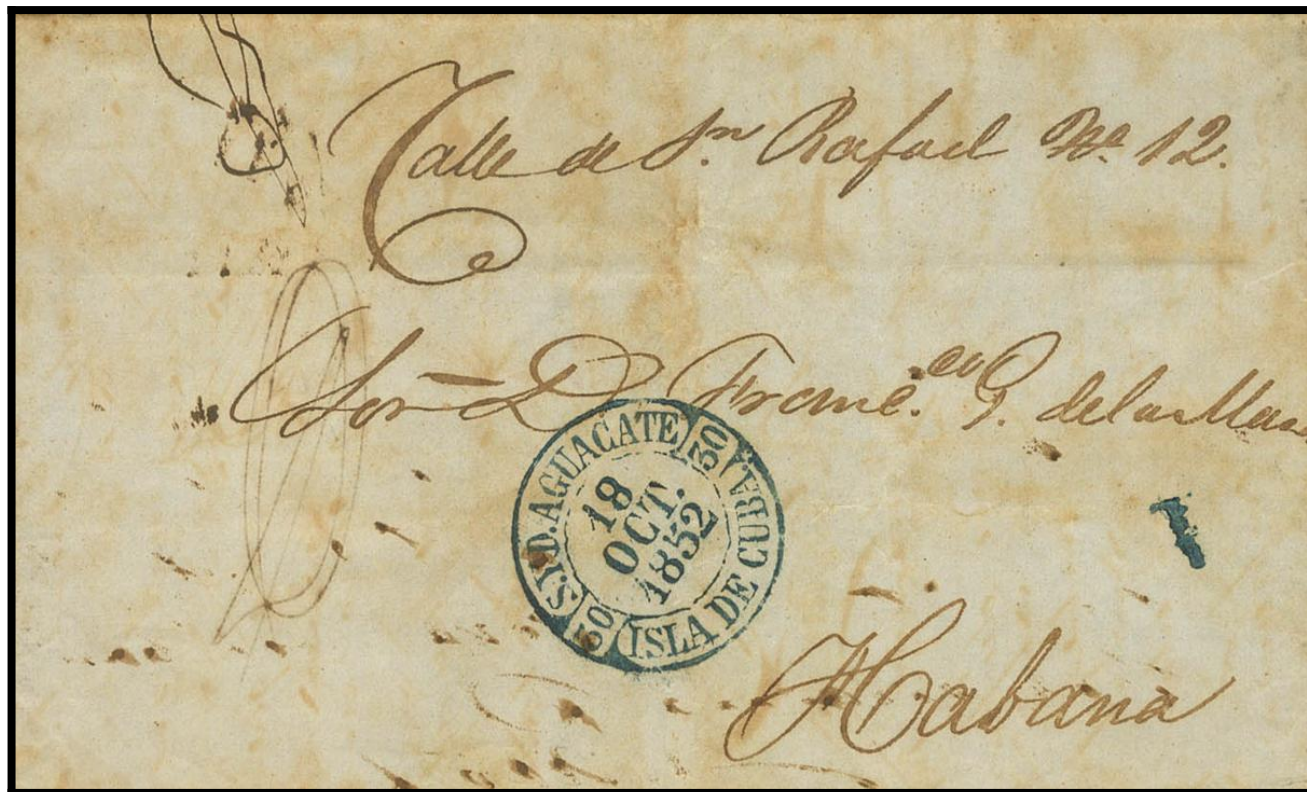 Calle de Sn. Rafael No. 12.
Sor. D. Francco. G. de la
S.Y.D. AGUACATE 30 ISLA DE CUBA. 30
18
OCT.
1852
1
Habana